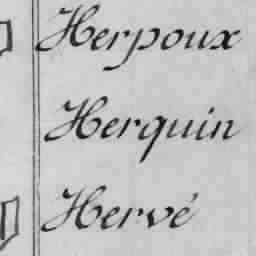 Herpoux
Herquin
Hervé